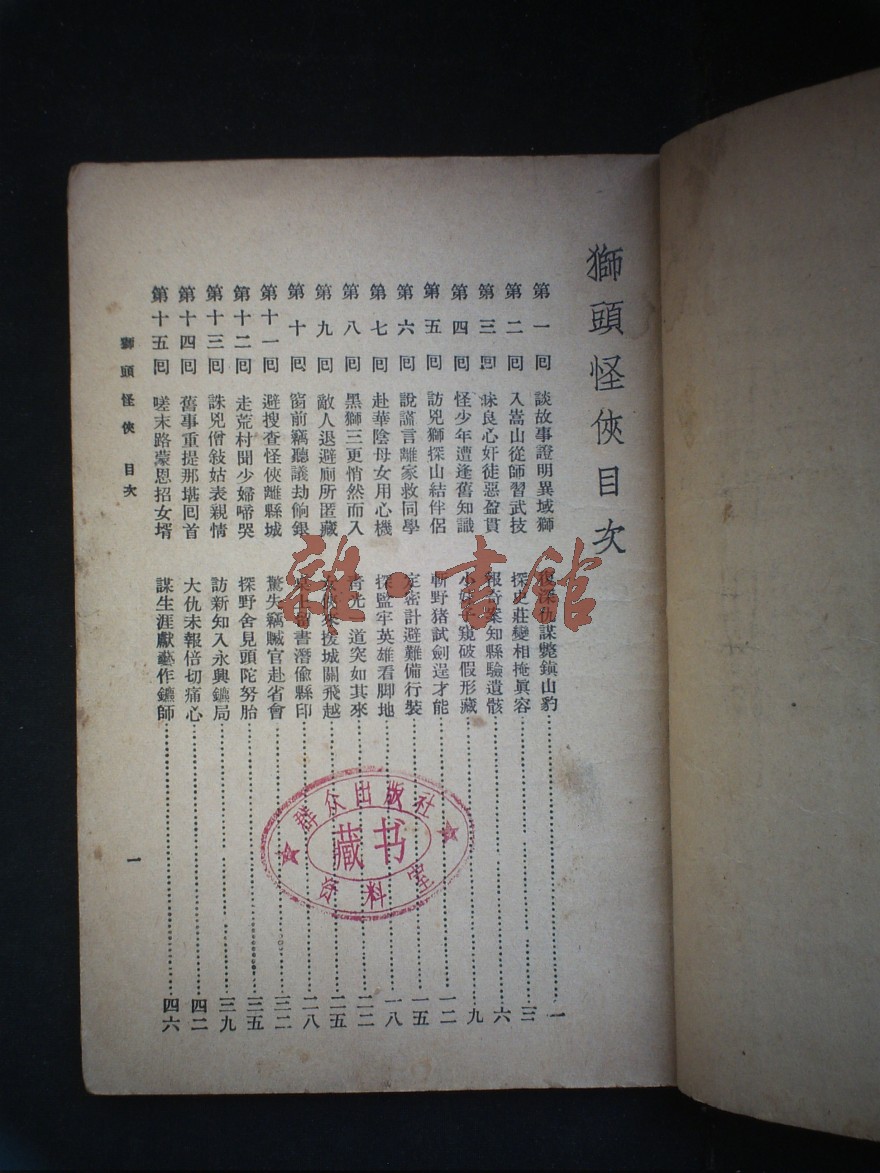 獅頭怪俠目次
第一回 談故事證明異域獅 復深仇謀斃鎮山豹 一
第二回 入嵩山從師習武技 探史莊變相掩眞容 三
第三回 昧良心奸徒惡盈貫 報奇案知縣驗遺骸 六
第四回 怪少年遭逢舊知識 小妹子窺破假形藏 九
第五回 訪兇獅探山結伴侶 斬野猪試劍逞才能 一二
第六回 說謊言離家救同學 定密計避難備行裝 一五
第七回 赴華陰母女用心機 探監牢英雄看脚地 一八
第八回 黑獅三更悄然而入 靑光一道突如其來 二二
第九回 敵人退避廁所匿藏 女俠來援城關飛越 二五
第十回 窗前竊聽議劫餉銀 桌上留書潛偷縣印 二八
第十一回 避搜查怪俠離縣城 驚失竊贓官赴省會 三二
第十二回 走荒村聞少婦啼哭 探野舍見頭陀努胎 三五
第十三回 誅兇僧敍姑表親情 訪新知入永興鑣局 三九
第十四回 舊事重提那堪回首 大仇未報倍切痛心 四二
第十五回 嗟末路蒙恩招女壻 謀生涯獻藝作鑣師 四六
獅頭怪俠 目次
一
群众出版社
藏书
资料室
雜·書館